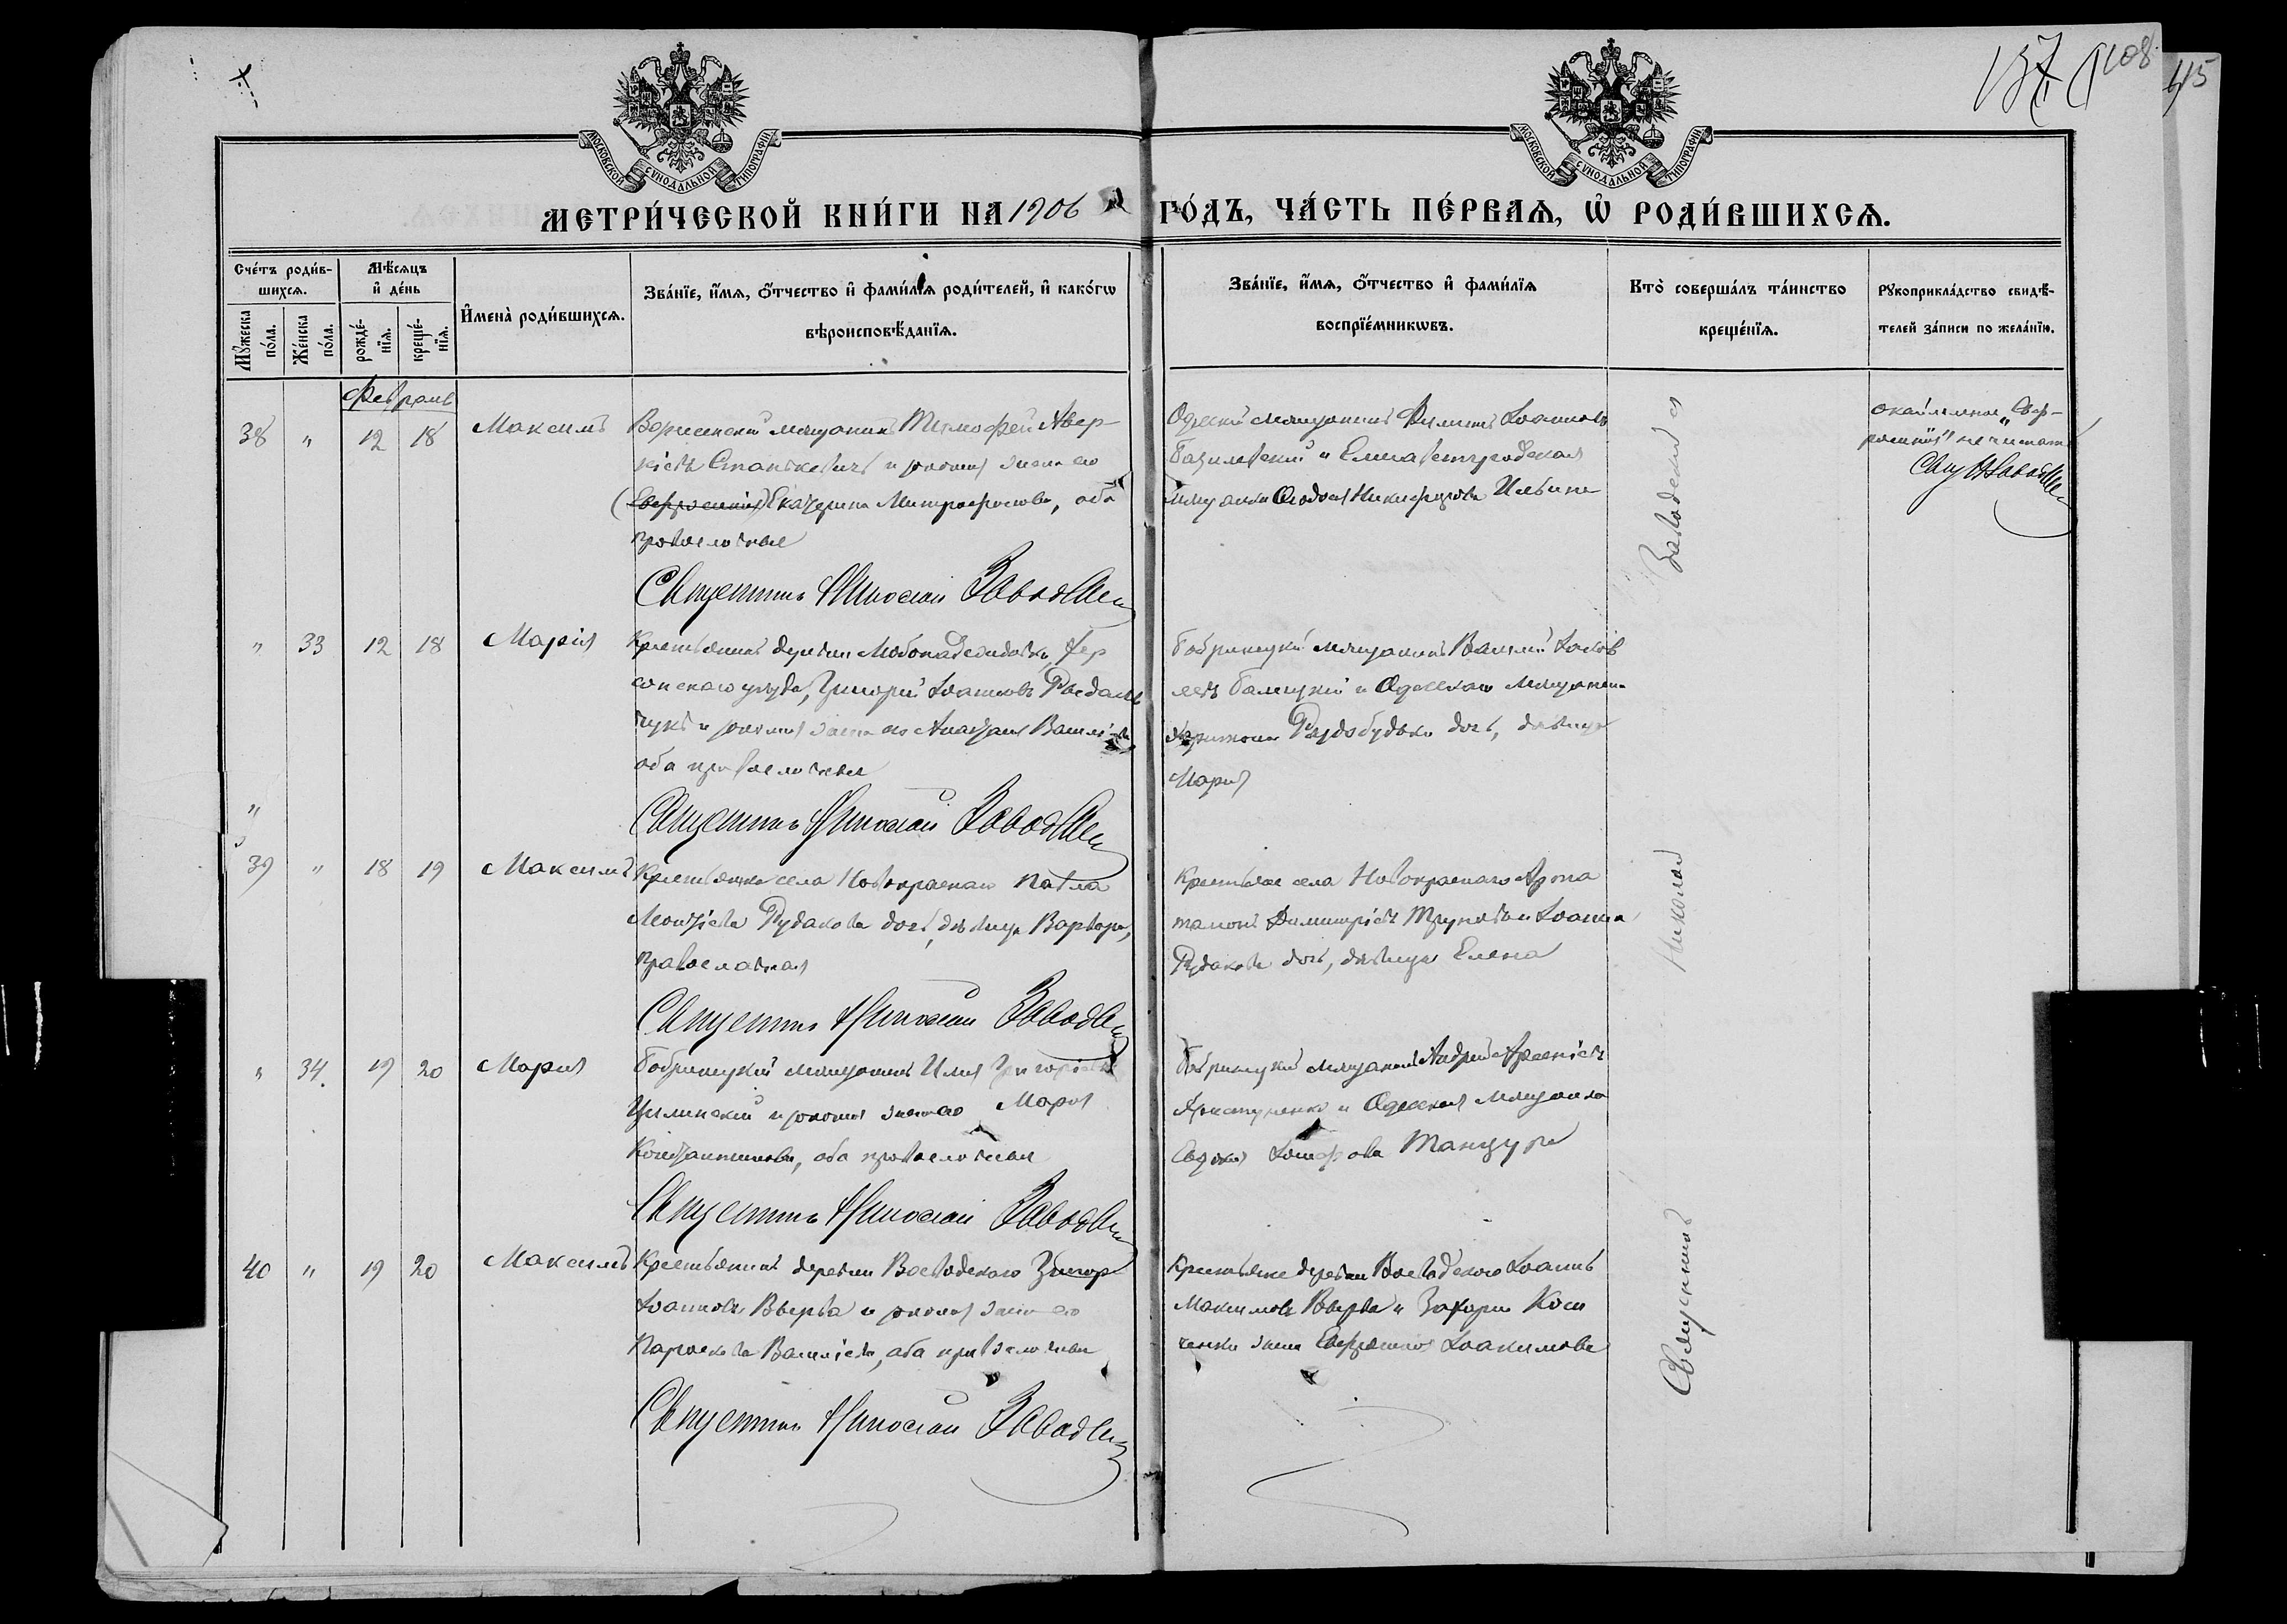 137 108
45
МОСКОВСКОЙ СѴНОДАЛЬНОЙ ТИПОГРАФІИ
МОСКОВСКОЙ СѴНОДАЛЬНОЙ ТИПОГРАФІИ
МЕТРИ́ЧЕСКОЙ КНИ́ГИ НА 1906 ГО́ДЪ, ЧА́СТЬ ПЕ́РВАѦ, Ѡ҆ РОДИ́ВШИХСѦ.
Сче́тъ роди́в-
шихсѧ.
Мѹ́жеска по́ла.
Же́нска по́ла.
Мѣ́сѧцъ
и҆ де́нь
рожде́-
нїѧ.
креще́-
нїѧ.
И҆мена̀ роди́вшихсѧ.
Зва́нїе, и҆́мѧ, ѻ҆́тчество и҆ фами́лїѧ роди́телей, и҆ како́гѡ
вѣроисповѣ́данїѧ.
Зва́нїе, и҆́мѧ, ѻ҆́тчество и҆ фами́лїѧ
воспрїе́мникѡвъ.
Кто̀ соверша́лъ та́инство
креще́нїѧ.
Рѹкоприкла́дство свидѣ́-
телей за́писи по жела́нїю.
Февраль
38 " 12 18 Максимъ
мѣщанинъ Тимофей Авер-
кіевъ Станкевичъ и законная жена его
(Евфросинія) Екатерина Митрофанова, оба
православные
Священникъ Николай Заводскій
Одесскій мѣщанинъ Филиппъ Іоанновъ
Базилевскій и Елисаветградская
мѣщанка Ѳеодосія Никифорова Ильина
окаймленное „Евф-
росинія" не читать
Свящ Н Заводскій
" 33 12 18 Марія
Крестьянинъ деревни Хер
сонскаго уѣзда, Григорій Іоанновъ
чукъ и законная жена его Анастасія Василіева
оба православные
Священникъ Николай Заводскій
Бобринецкій мѣщанинъ Василій
и Одесскаго мѣщанина
Харитона дочь, дѣвица
Марія
"
39 " 18 19 Максимъ
Крестьянка села Новокраснаго Павла
Моисѣева Рудакова дочь, дѣвица Варвара,
православная
Священникъ Николай Заводскій
Крестьяне села Новокраснаго
Димитріевъ и Іоанна
Рудакова дочь, дѣвица Елена
" 34. 19 20 Марія
Бобринецкій мѣщанинъ Илія Григоріевъ
и законная жена его Марія
Константинова, оба православные
Священникъ Николай Заводскій
Бобринецкій мѣщанинъ Андрей Арсеніевъ
и Одесская мѣщанка
Танцура
40 " 19 20 Максимъ
Крестьянинъ деревни Воеводскаго Григор
Іоанновъ Вѣерва и законная жена его
Параскева Василіева, оба православные
Священникъ Николай Заводскій
Крестьяне деревни Воеводскаго Іоаннъ
Максимовъ и Захарія Коси
ченка жена Евфросинія Іоакимова
Священникъ Николай Заводскій